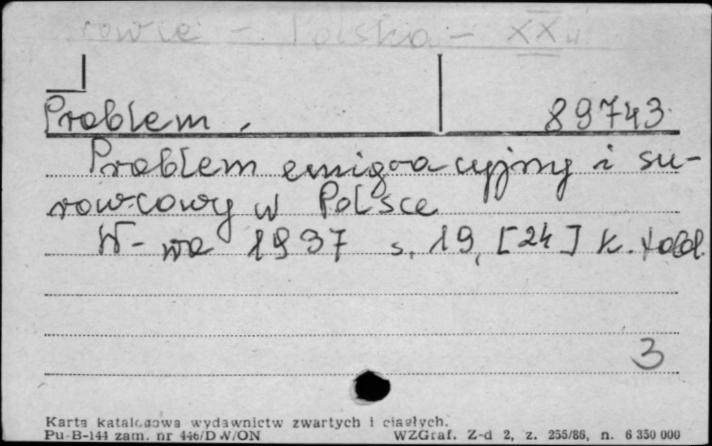 rowce - Polska - XX w.
Problem. 89743
Problem emigracyjny i su-
rowcowy w Polsce
W-wa 1937 s. 19, [24] k. tabl.
3
Karta katalogowa wydawnictw zwartych i ciągłych.
Pu-B-144 zam. nr 446/D W/ON WZGraf. Z-d 2, z. 255/86, n. 6 350 000